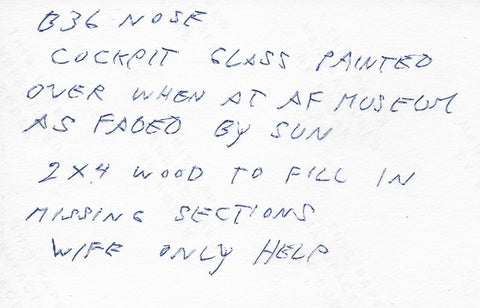 B36 NOSE
COCKPIT GLASS PAINTED
OVER WHEN AT AF MUSEUM
AS FADED BY SUN
2X4 WOOD TO FILL IN
MISSING SECTIONS
WIFE ONLY HELP